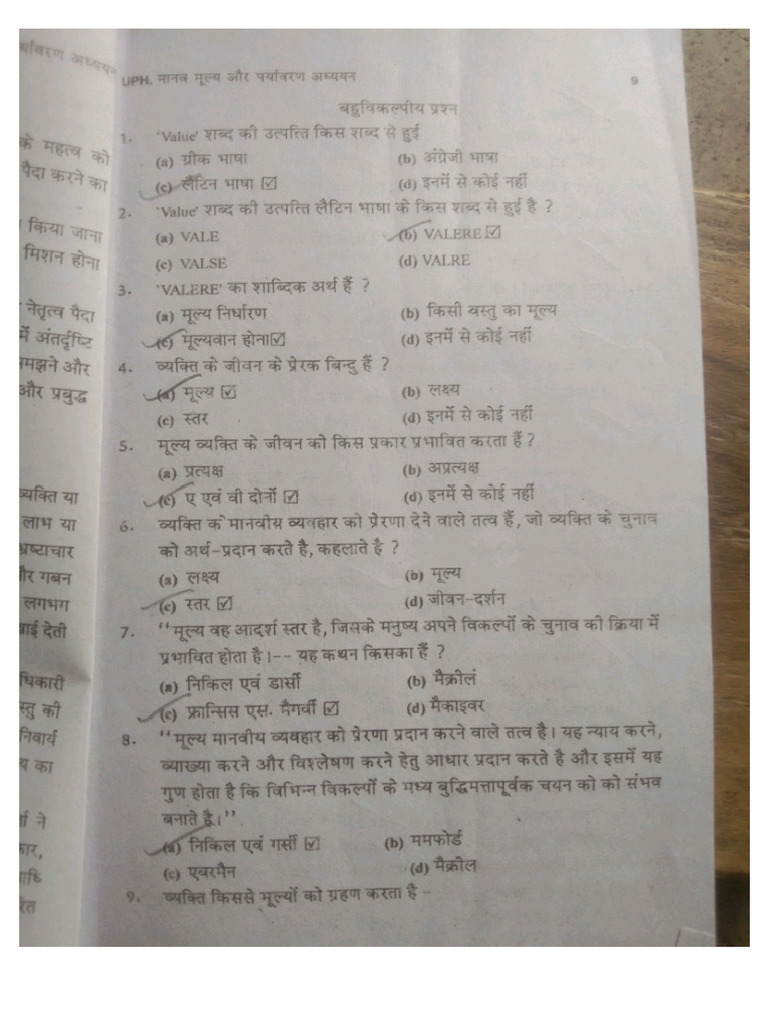 र्यावरण अध्ययन
के महत्व को
पैदा करने का
किया जाना
मिशन होना
नेतृत्व पैदा
में अंतर्दृष्टि
समझने और
और प्रबुद्ध
व्यक्ति या
लाभ या
भ्रष्टाचार
और गबन
लगभग
ाई देती
धिकारी
स्तु की
निवार्य
य का
ने
कार,
UPH. मानव मूल्य और पर्यावरण अध्ययन 9
बहुविकल्पीय प्रश्न
1. 'Value' शब्द की उत्पत्ति किस शब्द से हुई
(a) ग्रीक भाषा (b) अंग्रेजी भाषा
(c) लैटिन भाषा ☑ (d) इनमें से कोई नहीं
2. 'Value' शब्द की उत्पत्ति लैटिन भाषा के किस शब्द से हुई है ?
(a) VALE (b) VALERE ☑
(c) VALSE (d) VALRE
3. 'VALERE' का शाब्दिक अर्थ हैं ?
(a) मूल्य निर्धारण (b) किसी वस्तु का मूल्य
(c) मूल्यवान होना ☑ (d) इनमें से कोई नहीं
4. व्यक्ति के जीवन को प्रेरक बिन्दु हैं ?
(a) मूल्य ☑ (b) लक्ष्य
(c) स्तर (d) इनमें से कोई नहीं
5. मूल्य व्यक्ति के जीवन को किस प्रकार प्रभावित करता हैं ?
(a) प्रत्यक्ष (b) अप्रत्यक्ष
(c) ए एवं वी दोनों ☑ (d) इनमें से कोई नहीं
6. व्यक्ति के मानवीय व्यवहार को प्रेरणा देने वाले तत्व हैं, जो व्यक्ति के चुनाव
को अर्थ-प्रदान करते है, कहलाते है ?
(a) लक्ष्य (b) मूल्य
(c) स्तर ☑ (d) जीवन-दर्शन
7. ''मूल्य वह आदर्श स्तर है, जिसके मनुष्य अपने विकल्पों के चुनाव की क्रिया में
प्रभावित होता है।-- यह कथन किसका हैं ?
(a) निकिल एवं डार्सी (b) मैक्रील
(c) फ्रान्सिस एस. मैगर्वी ☑ (d) मैकाइवर
8. ''मूल्य मानवीय व्यवहार को प्रेरणा प्रदान करने वाले तत्व है। यह न्याय करने,
व्याख्या करने और विश्लेषण करने हेतु आधार प्रदान करते है और इसमें यह
गुण होता है कि विभिन्न विकल्पों के मध्य बुद्धिमत्तापूर्वक चयन को को संभव
बनाते है।''
(a) निकिल एवं गर्सी ☑ (b) ममफोर्ड
(c) एवरमैन (d) मैक्रील
9. व्यक्ति किससे मूल्यों को ग्रहण करता है -